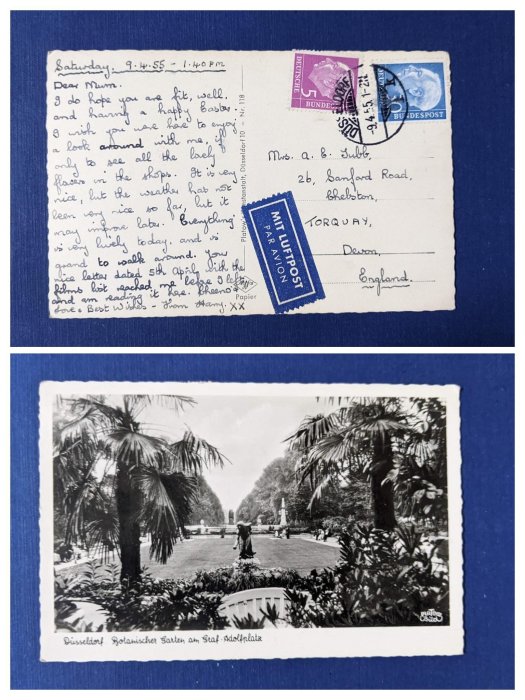 Saturday. 9.4.55 - 1.40 PM
Dear Mum.
I do hope you are fit, well,
and having a happy Easter.
I wish you were here to enjoy
a look around with me, if
only to see all the lovely
flowers in the shops. It is very
nice, but the weather has not
been very nice so far, but it
may improve later. Everything
is very lively today, and is
grand to walk around. Your
nice letter dated 5th April with the
films list reached me before I left
and am reading it here. Cheerio
Love & Best Wishes - from Harry. XX
DEUTSCHE
5
BUNDESPOST
BUNDESPOST
DÜSSELDORF
-9.4.55.1-2
Mrs. A. E. Tubb,
26, Sanford Road,
Chelston,
TORQUAY,
Devon,
England.
MIT LUFTPOST
PAR AVION
Düsseldorf 10 - Nr. 118
Agfa
Papier
Düsseldorf Botanischer Garten am Graf-Adolfplatz